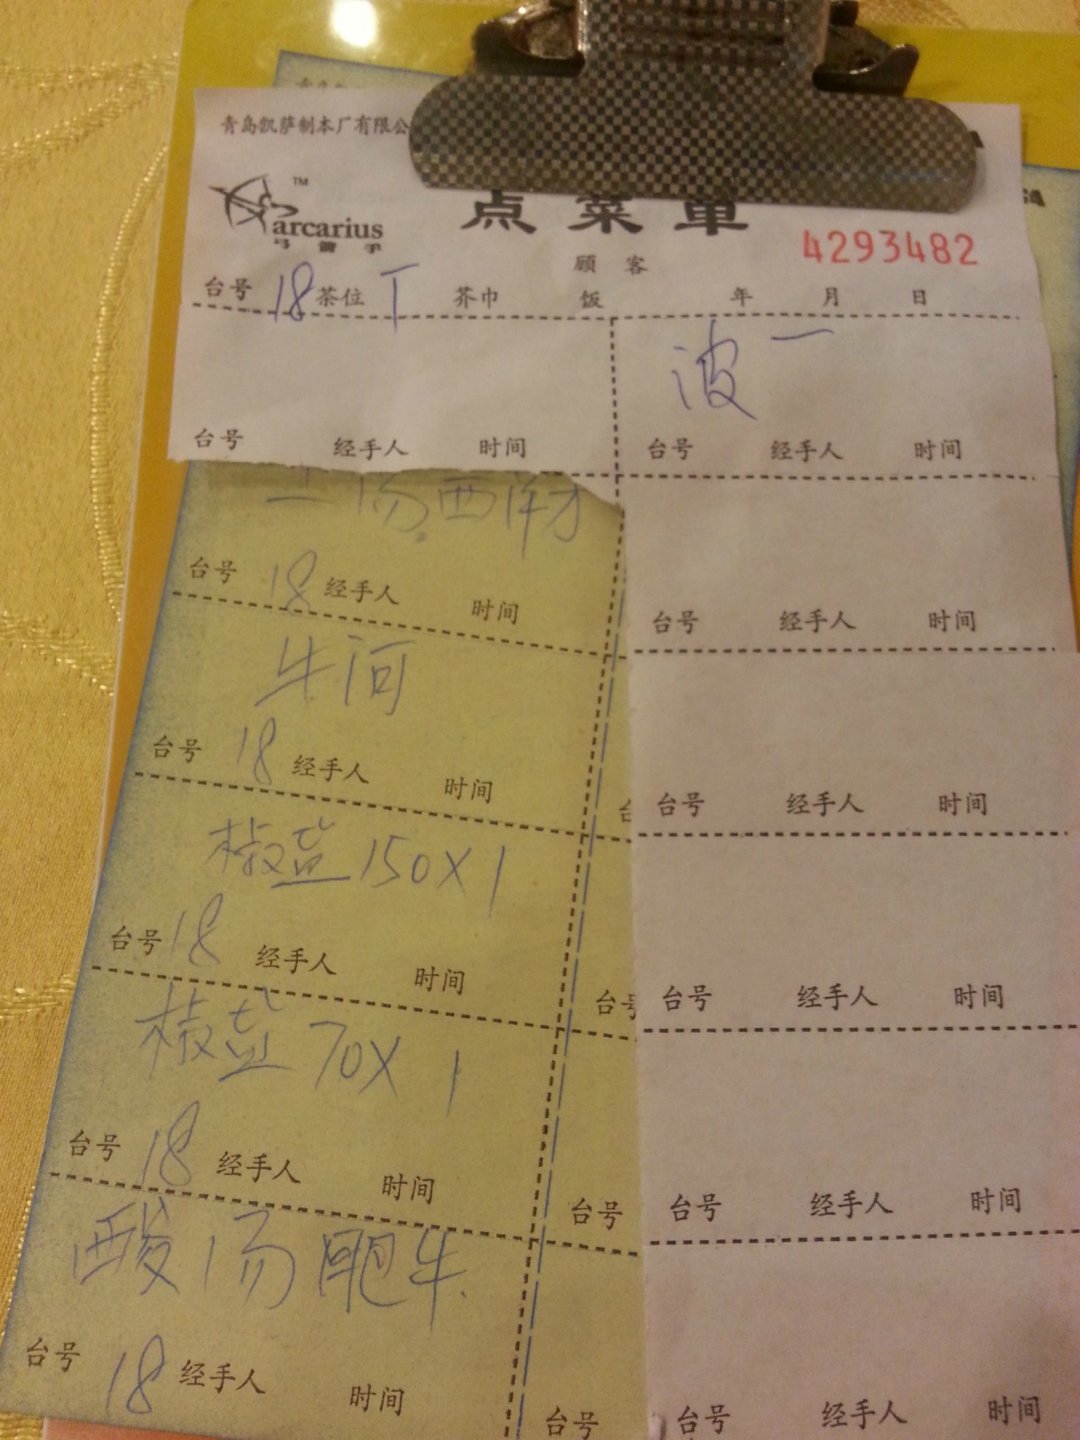 青岛凯萨制本厂有限公
TM
arcarius
弓箭手
点菜单
4293482
顾客
台号 18 茶位 T 芥巾 饭 年 月 日
波一
台号 经手人 时间 台号 经手人 时间
上汤西洋才
台号 18 经手人 时间 台号 经手人 时间
牛河
台号 18 经手人 时间 台号 经手人 时间
椒盐150X1
台号 18 经手人 时间 台号 台号 经手人 时间
椒盐70X1
台号 18 经手人 时间 台号 台号 经手人 时间
酸汤肥牛
台号 18 经手人 时间 台号 台号 经手人 时间